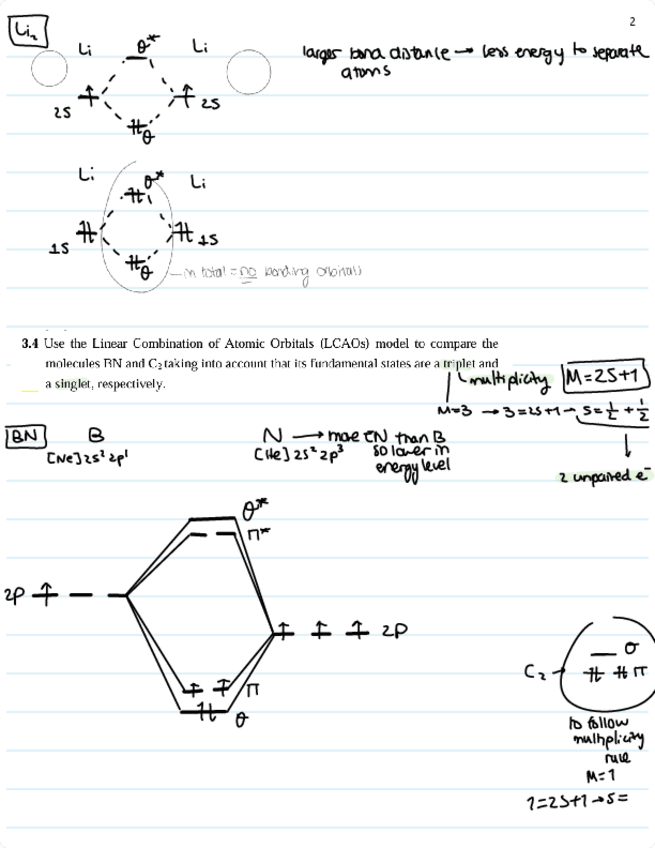 2
Li₂
Li σ* Li
larger bond distance → less energy to separate
atoms
2S 2S
σ
Li σ* Li
1S 1S
σ
in total = no bonding orbitals
3.4 Use the Linear Combination of Atomic Orbitals (LCAOs) model to compare the
molecules BN and C₂ taking into account that its fundamental states are a triplet and
a singlet, respectively.
multiplicity M=2S+1
M=3 → 3=2S+1 → S=½+½
2 unpaired e⁻
BN B N → more EN than B
[Ne]2s²2p¹ [He]2s²2p³ so lower in
energy level
σ*
π*
2P
2P
π
σ
σ
C₂ π
to follow
multiplicity
rule
M=1
1=2S+1→S=